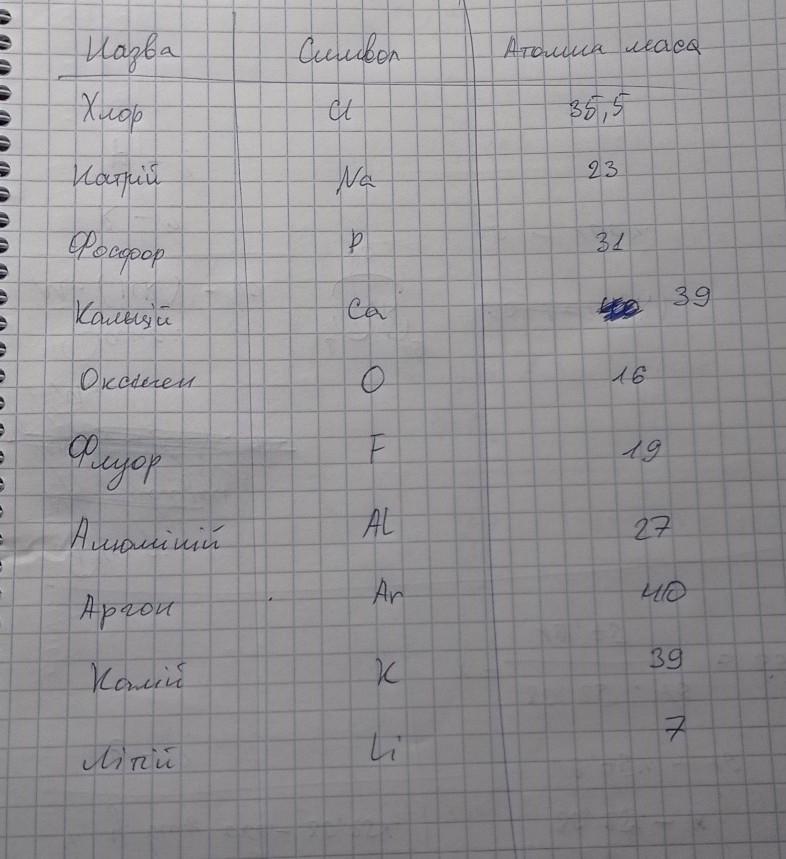 Назва Символ Атомна маса
Хлор Cl 35,5
Натрій Na 23
Фосфор P 31
Кальцій Ca 39
Оксиген O 16
Флуор F 19
Алюміній Al 27
Аргон Ar 40
Калій K 39
Літій Li 7